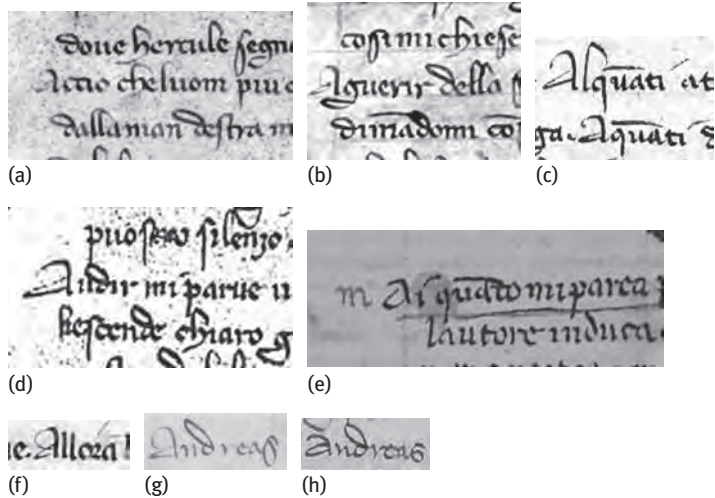 doue hercule segn
Actio che luom piu
dallaman destra
(a)
cosi mi chiese
Aguerir della
(b)
Alquāti at
ga. Aquāti
(c)
silenzo
Audir mi parue
chiaro
(d)
m Ai quāto mi parea
lautore induca
(e)
Allora
(f)
Andreas
(g)
Andreas
(h)